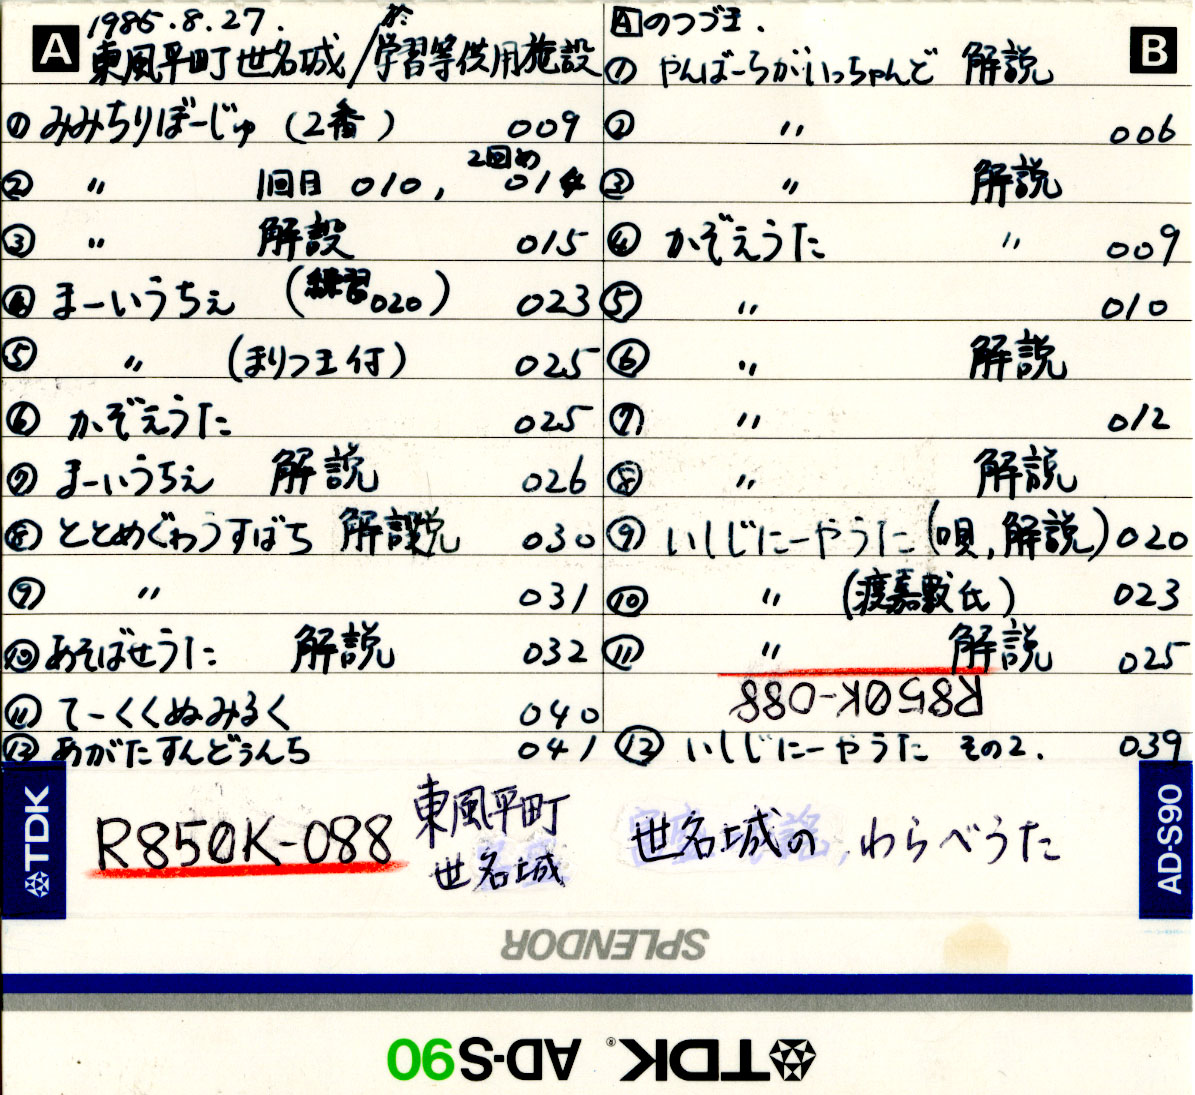 A 1985.8.27.
東風平町世名城/於 学習等供用施設
① みみちりぼーじゅ (2番) 009
② 〃 1回目 010, 2回め 014
③ 〃 解説 015
④ まーいうちぇ (練習020) 023
⑤ 〃 (まりつき付) 025
⑥ かぞえうた 025
⑦ まーいうちぇ 解説 026
⑧ ととめぐゎうすばち 解説 030
⑨ 〃 031
⑩ あそばせうた 解説 032
⑪ てーくくぬみるく 040
⑫ あがたすんどぅんち 041
B
Aのつづき.
① やんばーらがいっちゃんど 解説
② 〃 006
③ 〃 解説
④ かぞえうた 〃 009
⑤ 〃 010
⑥ 〃 解説
⑦ 〃 012
⑧ 〃 解説
⑨ いしじにーやうた (唄,解説) 020
⑩ 〃 (渡嘉敷氏) 023
⑪ 〃 解説 025
R850K-088
⑫ いしじにーやうた その2. 039
TDK
R850K-088
東風平町
世名城
世名城の わらべうた
AD-S90
SPLENDOR
TDK® AD-S90